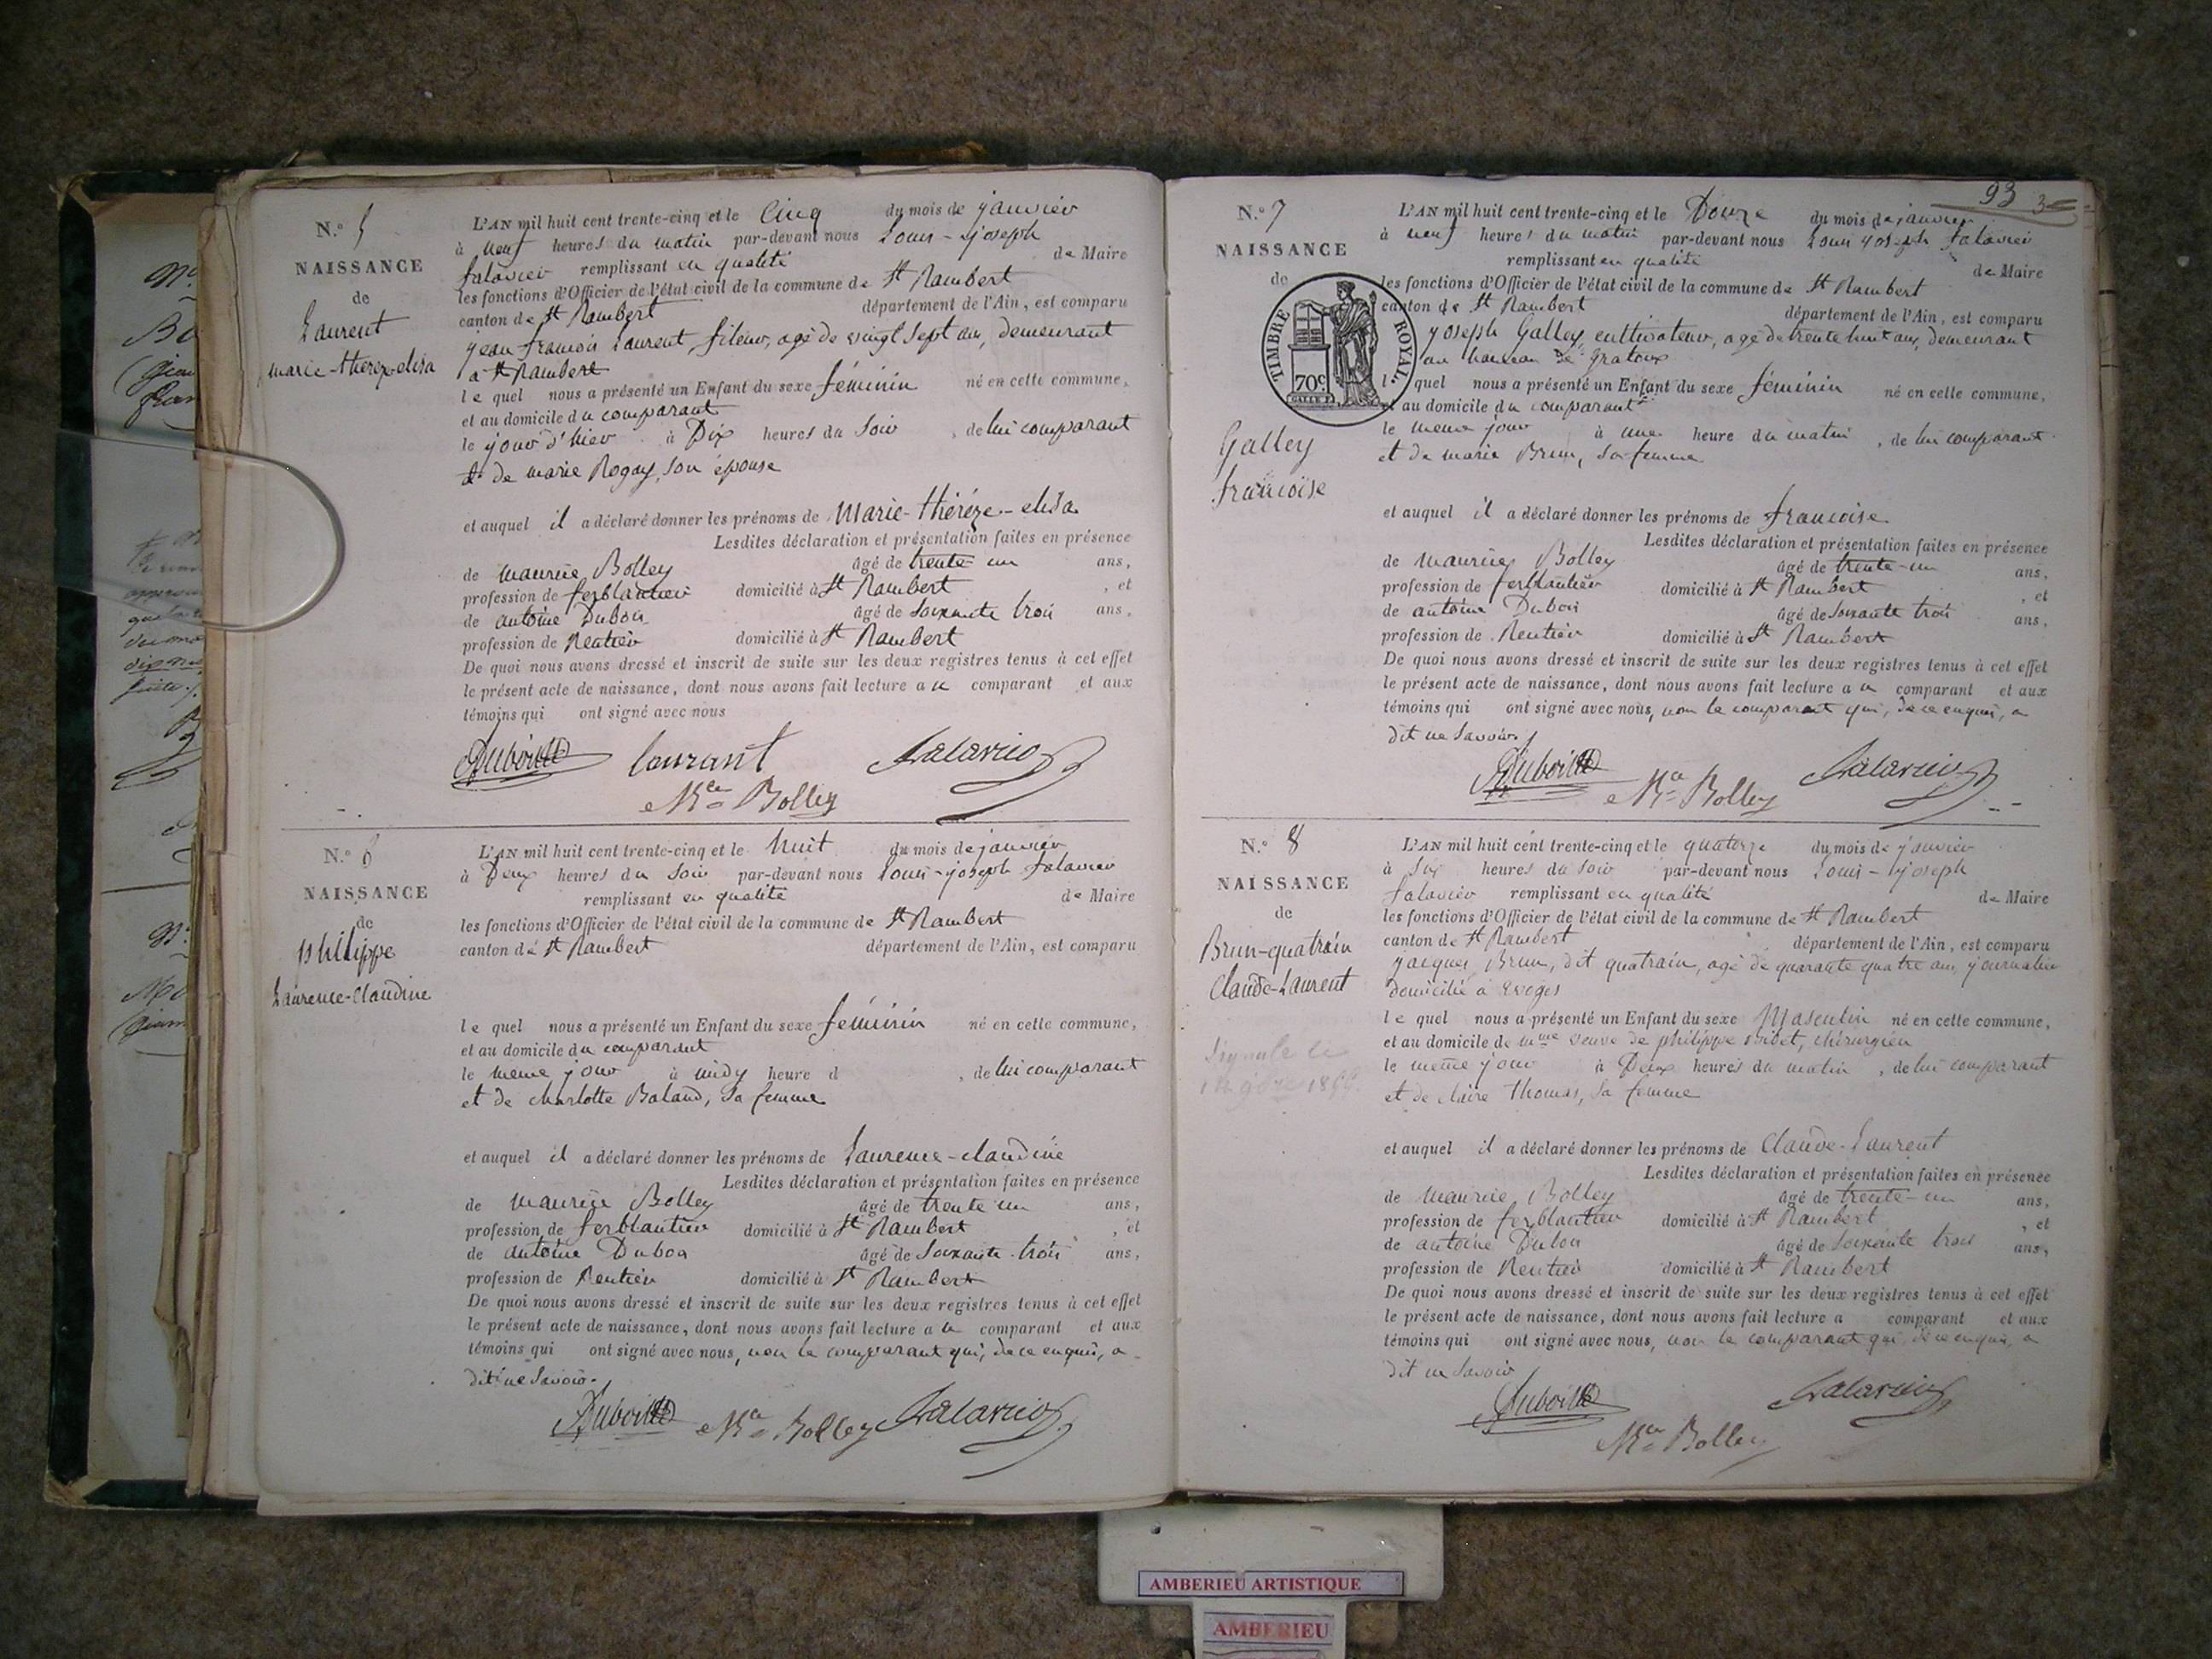 N.º 5
NAISSANCE
de
Laurent
marie-thereze-elisa
L'AN mil huit cent trente-cinq et le Cinq du mois de janvier
à neuf heures du matin par-devant nous Louis-joseph
falavier remplissant en qualité de Maire
les fonctions d'Officier de l'état civil de la commune de St Rambert
canton de St Rambert département de l'Ain, est comparu
jean françois Laurent, fileur, agé de vingt sept ans, demeurant
à St Rambert
le quel nous a présenté un Enfant du sexe féminin né en cette commune,
et au domicile du comparant
le jour d'hier à Dix heures du soir, de lui comparant
et de marie Rogay, son épouse
et auquel il a déclaré donner les prénoms de Marie-thérèze-elisa
Lesdites déclaration et présentation faites en présence
de maurice Bolley âgé de trente un ans,
profession de ferblantier domicilié à St Rambert, et
de antoine Dubois âgé de soixante trois ans,
profession de Rentier domicilié à St Rambert
De quoi nous avons dressé et inscrit de suite sur les deux registres tenus à cet effet
le présent acte de naissance, dont nous avons fait lecture au comparant et aux
témoins qui ont signé avec nous
Dubois Laurant falavier
Mce Bolley
N.º 6
NAISSANCE
de
philippe
Laurence-Claudine
L'AN mil huit cent trente-cinq et le huit du mois de janvier
à Deux heures du soir par-devant nous Louis-joseph falavier
remplissant en qualité de Maire
les fonctions d'Officier de l'état civil de la commune de St Rambert
canton de St Rambert département de l'Ain, est comparu
le quel nous a présenté un Enfant du sexe féminin né en cette commune,
et au domicile du comparant
le meme jour à midy heure d , de lui comparant
et de charlotte Baland, sa femme
et auquel il a déclaré donner les prénoms de Laurence-claudine
Lesdites déclaration et présentation faites en présence
de maurice Bolley âgé de trente un ans,
profession de ferblantier domicilié à St Rambert, et
de antoine Dubois âgé de soixante-trois ans,
profession de Rentier domicilié à St Rambert
De quoi nous avons dressé et inscrit de suite sur les deux registres tenus à cet effet
le présent acte de naissance, dont nous avons fait lecture au comparant et aux
témoins qui ont signé avec nous, non le comparant qui, de ce enquis, a
dit ne savoir.
Dubois Mce Bolley falavier
93 3
N.º 7
NAISSANCE
de
TIMBRE ROYAL
70c.
Galley
françoise
L'AN mil huit cent trente-cinq et le Douze du mois de janvier
à neuf heures du matin par-devant nous Louis joseph falavier
remplissant en qualité de Maire
les fonctions d'Officier de l'état civil de la commune de St Rambert
canton de St Rambert département de l'Ain, est comparu
joseph Galley, cultivateur, agé de trente huit ans, demeurant
au hameau de gratoux
lequel nous a présenté un Enfant du sexe féminin né en cette commune,
et au domicile du comparant
le meme jour à une heure du matin, de lui comparant
et de marie Brun, sa femme
et auquel il a déclaré donner les prénoms de françoise
Lesdites déclaration et présentation faites en présence
de maurice Bolley âgé de trente-un ans,
profession de ferblantier domicilié à St Rambert, et
de antoine Dubois âgé de soixante trois ans,
profession de Rentier domicilié à St Rambert
De quoi nous avons dressé et inscrit de suite sur les deux registres tenus à cet effet
le présent acte de naissance, dont nous avons fait lecture au comparant et aux
témoins qui ont signé avec nous, non le comparant qui, de ce enquis, a
dit ne savoir
Dubois Mce Bolley falavier
N.º 8
NAISSANCE
de
Brun-quatrain
Claude-Laurent
L'AN mil huit cent trente-cinq et le quatorze du mois de janvier
à six heures du soir par-devant nous Louis-joseph
falavier remplissant en qualité de Maire
les fonctions d'Officier de l'état civil de la commune de St Rambert
canton de St Rambert département de l'Ain, est comparu
jacques Brun, dit quatrain, agé de quarante quatre ans, journalier
domicilié à Evoges
le quel nous a présenté un Enfant du sexe Masculin né en cette commune,
et au domicile de mme veuve de philippe Bibet, chirurgien
le meme jour à Deux heures du matin, de lui comparant
et de claire Thomas, sa femme
et auquel il a déclaré donner les prénoms de Claude-Laurent
Lesdites déclaration et présentation faites en présence
de maurice Bolley âgé de trente-un ans,
profession de ferblantier domicilié à St Rambert, et
de antoine Dubois âgé de soixante trois ans,
profession de Rentier domicilié à St Rambert
De quoi nous avons dressé et inscrit de suite sur les deux registres tenus à cet effet
le présent acte de naissance, dont nous avons fait lecture a comparant et aux
témoins qui ont signé avec nous, non le comparant qui, de ce enquis, a
dit ne savoir
Dubois falavier
Mce Bolley
AMBERIEU ARTISTIQUE
AMBERIEU